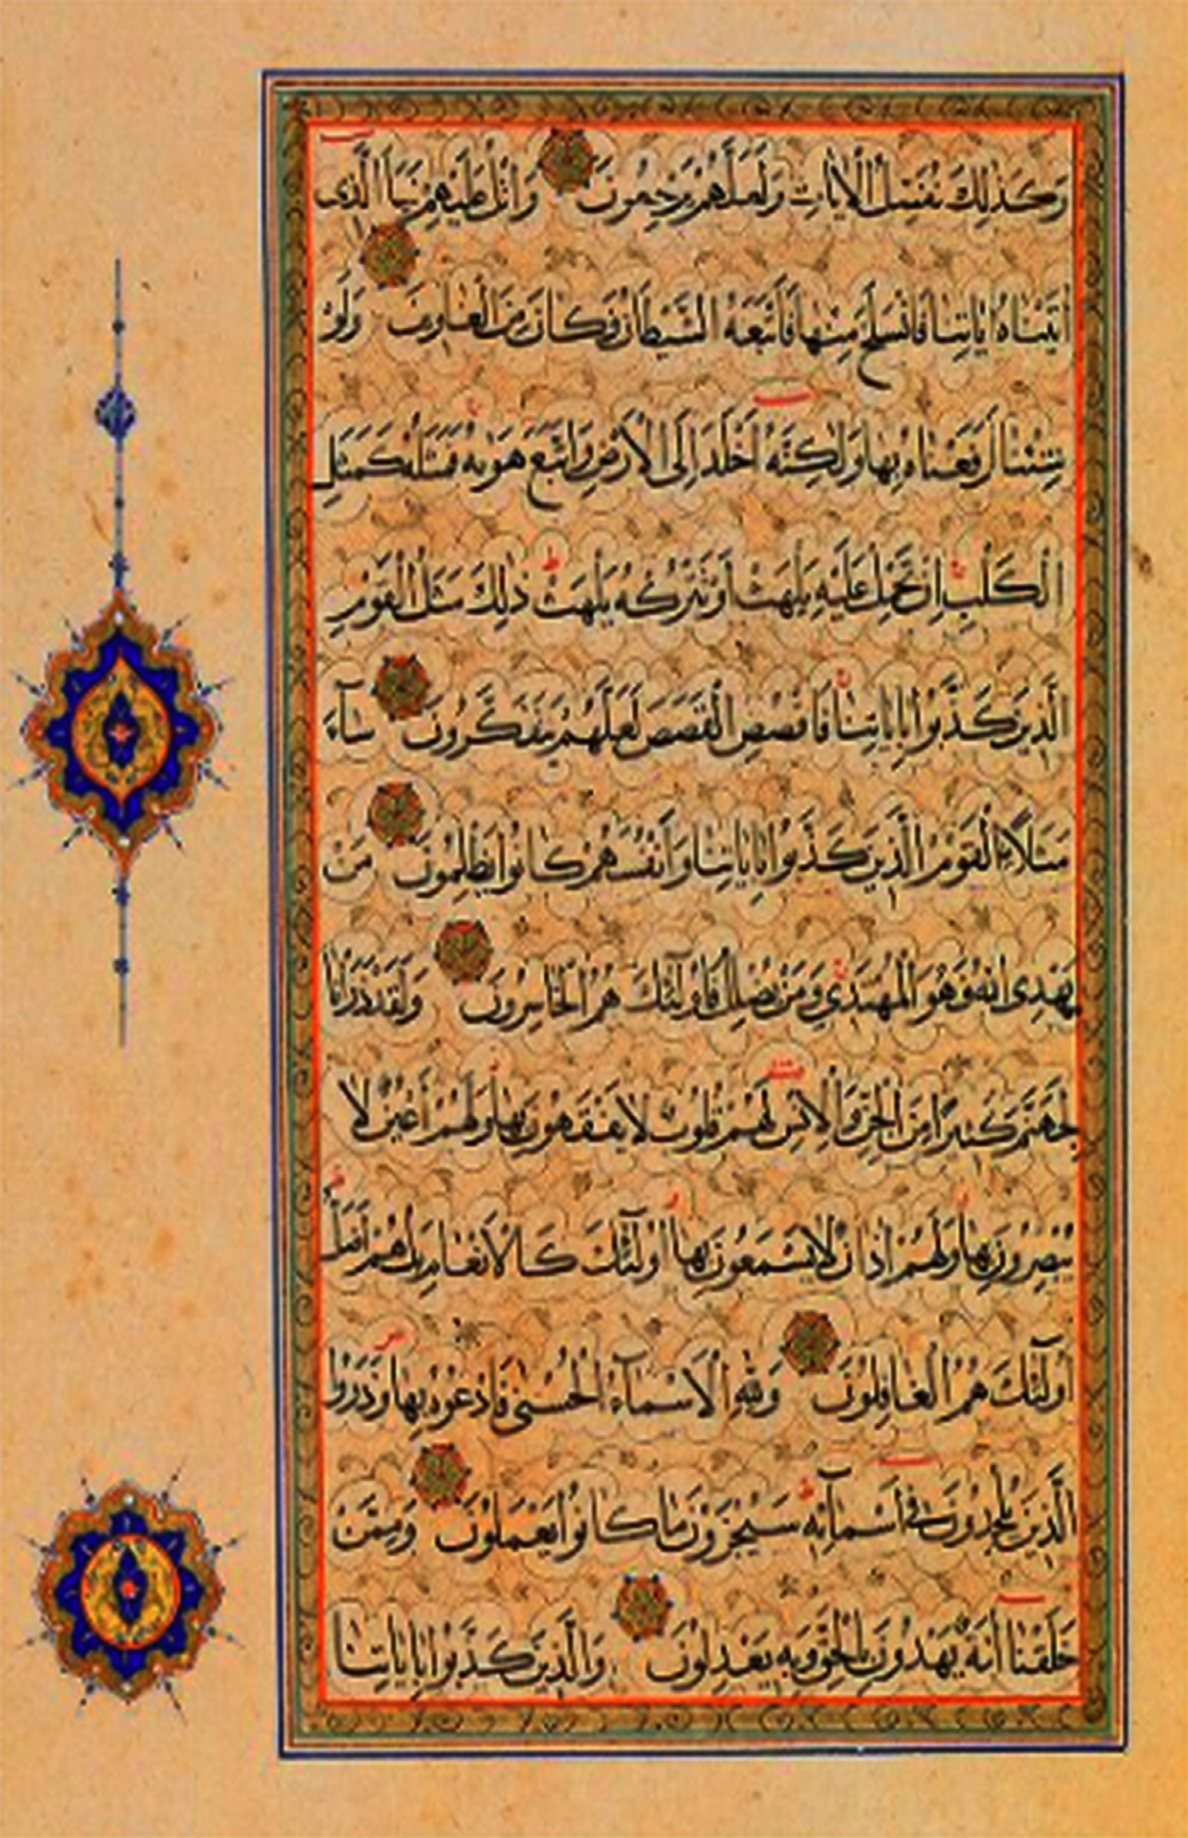 وَكَذٰلِكَ نُفَصِّلُ الْاٰيَاتِ وَلَعَلَّهُمْ يَرْجِعُونَ وَاتْلُ عَلَيْهِمْ نَبَاَ الَّذِى
اٰتَيْنَاهُ اٰيَاتِنَا فَانْسَلَخَ مِنْهَا فَاَتْبَعَهُ الشَّيْطَانُ فَكَانَ مِنَ الْغَاوِينَ وَلَوْ
شِئْنَا لَرَفَعْنَاهُ بِهَا وَلٰكِنَّهُ اَخْلَدَ اِلَى الْاَرْضِ وَاتَّبَعَ هَوٰيهُ فَمَثَلُهُ كَمَثَلِ
الْكَلْبِ اِنْ تَحْمِلْ عَلَيْهِ يَلْهَثْ اَوْ تَتْرُكْهُ يَلْهَثْ ذٰلِكَ مَثَلُ الْقَوْمِ
الَّذِينَ كَذَّبُوا بِاٰيَاتِنَا فَاقْصُصِ الْقَصَصَ لَعَلَّهُمْ يَتَفَكَّرُونَ سَآءَ
مَثَلًا ࣙالْقَوْمُ الَّذِينَ كَذَّبُوا بِاٰيَاتِنَا وَاَنْفُسَهُمْ كَانُوا يَظْلِمُونَ مَنْ
يَهْدِى اللّٰهُ فَهُوَ الْمُهْتَدِي وَمَنْ يُضْلِلْ فَاُولٰٓئِكَ هُمُ الْخَاسِرُونَ وَلَقَدْ ذَرَاْنَا
لِجَهَنَّمَ كَثِيرًا مِنَ الْجِنِّ وَالْاِنْسِ لَهُمْ قُلُوبٌ لَا يَفْقَهُونَ بِهَا وَلَهُمْ اَعْيُنٌ لَا
يُبْصِرُونَ بِهَا وَلَهُمْ اٰذَانٌ لَا يَسْمَعُونَ بِهَا اُولٰٓئِكَ كَالْاَنْعَامِ بَلْ هُمْ اَضَلُّ
اُولٰٓئِكَ هُمُ الْغَافِلُونَ وَلِلّٰهِ الْاَسْمَآءُ الْحُسْنٰى فَادْعُوهُ بِهَا وَذَرُوا
الَّذِينَ يُلْحِدُونَ فِى اَسْمَآئِهِ سَيُجْزَوْنَ مَا كَانُوا يَعْمَلُونَ وَمِمَّنْ
خَلَقْنَا اُمَّةٌ يَهْدُونَ بِالْحَقِّ وَبِهِ يَعْدِلُونَ وَالَّذِينَ كَذَّبُوا بِاٰيَاتِنَا